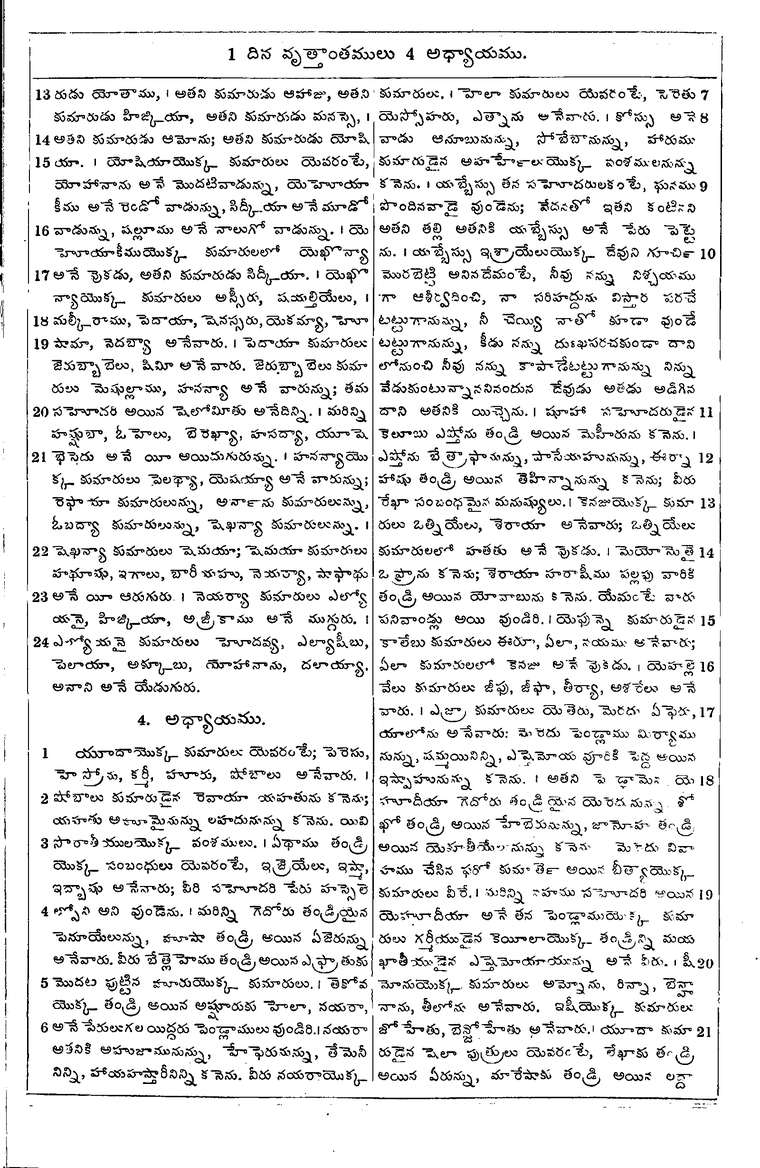 1 దిన వృత్తాంతములు 4 అధ్యాయము.
13 రుడు యోతాము, । అతని కుమారుడు ఆహాజు, అతని
కుమారుడు హిజ్కియా, అతని కుమారుడు మనస్సె, ।
14 అతని కుమారుడు ఆమోను; అతని కుమారుడు యోషి
15 యా. । యోషియాయొక్క కుమారులు యెవరంటే,
యోహానాను అనే మొదటివాడున్ను, యెహూయా
కీము అనే రెండో వాడున్ను, సిద్కీయా అనే మూడో
16 వాడున్ను, షల్లూము అనే నాలుగో వాడున్ను. । యె
హూయాకీముయొక్క కుమారులలో యెఖొన్యా
17 అనే వొకడు, అతని కుమారుడు సిద్కీయా. । యెఖొ
న్యాయొక్క కుమారులు అస్సీరు, షయల్తియేలు, ।
18 మల్కీరాము, పెదాయా, షెనస్సరు, యెకమ్యా, హూ
19 షామా, నెదబ్యా అనేవారు. । పెదాయా కుమారులు
జెరుబ్బాబెలు, షిమీ అనే వారు. జెరుబ్బాబెలు కుమా
రులు మెషుల్లాము, హనన్యా అనే వారున్ను; తమ
20 సహోదరి అయిన షెలోమీతు అనేదిన్ని. । మరిన్ని
హష్షుబా, ఓహెలు, బెరెఖ్యా, హసద్యా, యూషె
21 భెసెదు అనే యీ అయిదుగురున్ను. । హనన్యాయొ
క్క కుమారులు పెలథ్యా, యెషయ్యా అనే వారున్ను;
రెఫాయా కుమారులున్ను, అర్నాను కుమారులున్ను,
ఓబద్యా కుమారులున్ను, షెఖన్యా కుమారులున్ను. ।
22 షెఖన్యా కుమారులు షెమయా; షెమయా కుమారులు
హథూషు, ఇగాలు, బారీయహు, నెయర్యా, షాఫాథు
23 అనే యీ ఆరుగురు. । నెయర్యా కుమారులు ఎల్యో
యనై, హిజ్కియా, అజ్రీకాము అనే ముగ్గురు. ।
24 ఎల్యోయనై కుమారులు హూదవ్యా, ఎల్యాషీబు,
పెలాయా, అక్కూబు, యోహానాను, దలాయ్యా,
అనాని అనే యేడుగురు.
4. అధ్యాయము.
1 యూదాయొక్క కుమారులు యెవరంటే; పెరెసు,
హెస్రోను, కర్మీ, హూరు, షోబాలు అనేవారు. ।
2 షోబాలు కుమారుడైన రెవాయా యహతును కనెను;
యహతు అహూమైనున్ను లహదునున్ను కనెను. యివి
3 సొరాతీయులయొక్క వంశములు. । ఏథాము తండ్రి
యొక్క సంబంధులు యెవరంటే, ఇజ్రెయేలు, ఇష్మా,
ఇద్బాషు అనేవారు; వీరి సహోదరి పేరు హస్సెలె
4 ల్పోని అని వుండెను. । మరిన్ని గెదోరు తండ్రియైన
పెనూయేలున్ను, హూషా తండ్రి అయిన ఏజెరున్ను
అనేవారు. వీరు బేత్లెహెము తండ్రి అయిన ఎఫ్రాతుకు
5 మొదట పుట్టిన హూరుయొక్క కుమారులు. । తెకోవ
యొక్క తండ్రి అయిన అష్హూరుకు హెలా, నయరా,
6 అనే పేరులుగల యిద్దరు పెండ్లాములు వుండిరి. । నయరా
అతనికి అహుజామునున్ను, హేఫెరునున్ను, తేమెనీ
నిన్ని, హాయహస్తారీనిన్ని కనెను. వీరు నయరాయొక్క
కుమారులు. । హెలా కుమారులు యెవరంటే, సెరెతు 7
యెస్సోహరు, ఎత్నాను అనేవారు. । కోస్సు అనే 8
వాడు ఆనూబునున్ను, సోబేబానున్ను, హారుము
కుమారుడైన అహర్హేలుయొక్క వంశములనున్ను
కనెను. । యబ్బేస్సు తన సహోదరులకంటే, ఘనము 9
పొందినవాడై వుండెను; వేదనతో ఇతని కంటినని
అతని తల్లి అతనికి యబ్బేస్సు అనే పేరు పెట్టె
ను. । యబ్బేస్సు ఇశ్రాయేలుయొక్క దేవుని గూచిర్ 10
మొరబెట్టి అనినదేమంటే, నీవు నన్ను నిశ్చయము
గా ఆశీర్వదించి, నా సరిహద్దును విస్తార పరచే
టట్టుగానున్ను, నీ చెయ్యి నాతో కూడా వుండే
టట్టుగానున్ను, కీడు నన్ను దుఃఖపరచకుండా దాని
లోనుంచి నీవు నన్ను కాపాడేటట్టుగానున్ను నిన్ను
వేడుకుంటున్నాననినందున దేవుడు అతడు అడిగిన
దాని అతనికి యిచ్చెను. । షూహా సహోదరుడైన 11
కెలూబు ఎష్తోను తండ్రి అయిన మెహీరును కనెను. ।
ఎష్తోను బేత్రాఫానున్ను, పాసేయహునున్ను, ఈర్నా 12
హాషు తండ్రి అయిన తెహిన్నానున్ను కనెను; వీరు
రేఖా సంబంధమైన మనుష్యులు. । కెనజుయొక్క కుమా 13
రులు ఒత్నియేలు, శెరాయా అనేవారు; ఒత్నియేలు
కుమారులలో హతతు అనే వొకడు. । మెయోనొతై 14
ఒఫ్రాను కనెను; శెరాయా హరాషీము పల్లపు వారికి
తండ్రి అయిన యోవాబును కనెను. యేమంటే వారు
పనివాండ్లు అయి వుండిరి. । యెఫున్నె కుమారుడైన 15
కాలేబు కుమారులు ఈరూ, ఏలా, నయము అనేవారు;
ఏలా కుమారులలో కెనజు అనే వొకడు. । యెహల్లె 16
వేలు కుమారులు జీఫు, జీఫా, తీర్యా, అశరేలు అనే
వారు. । ఎజ్రా కుమారులు యెతెరు, మెరెదు ఏఫెరు, 17
యాలోను అనేవారు: మెరెదు పెండ్లాము మిర్యాము
నున్ను, షమ్మయినిన్ని, ఎష్తెమోయ వూరికి పెద్ద అయిన
ఇష్బాహునున్ను కనెను. । అతని పెండ్లామైన యె 18
హూదీయా గెదోరు తండ్రియైన యెరెదునున్ను శో
ఖో తండ్రి అయిన హేబెరునున్ను, జానోహ తండ్రి
అయిన యెహుతీయేలునున్ను కనెను మెరెదు వివా
హము చేసిన ఫరో కుమార్తె అయిన బీత్యాయొక్క
కుమారులు వీరే. । మరిన్ని నహము సహోదరి అయిన 19
యెహూదీయా అనే తన పెండ్లాముయొక్క కుమా
రులు గర్మీయుడైన కెయీలాయొక్క తండ్రిన్ని మయ
ఖాతీయుడైన ఎష్తెమోయాయున్ను అనే వీరు. । షీ 20
మోనుయొక్క కుమారులు అమ్నోను, రిన్నా, బెన్హా
నాను, తీలోను అనేవారు. ఇషీయొక్క కుమారులు
జోహేతు, బెన్జోహేతు అనేవారు. । యూదా కుమా 21
రుడైన షెలా పుత్రులు యెవరంటే, లేఖాకు తండ్రి
అయిన ఏరున్ను, మారేషాకు తండ్రి అయిన లద్దా